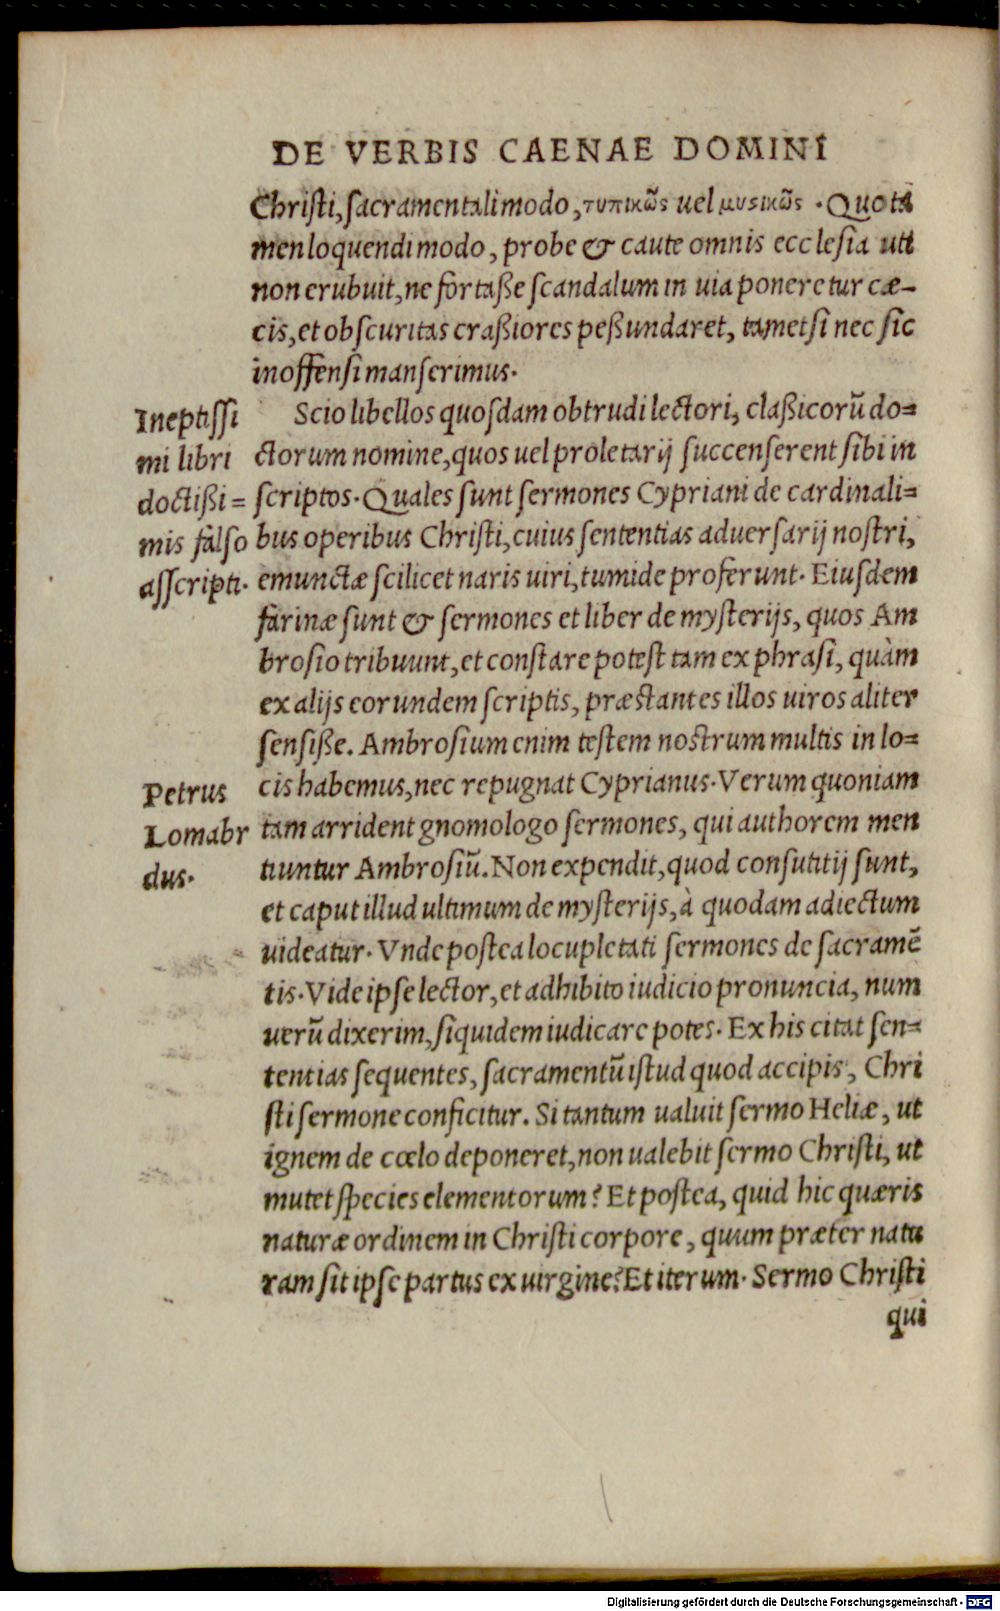 DE VERBIS CAENAE DOMINI
Christi, sacramentali modo, τυπικῶς uel μυσικῶς . Quo tã
men loquendi modo, probe & caute omnis ecclesia uti
non erubuit, ne fortaße scandalum in uia poneretur cæ-
cis, et obscuritas craßiores peßundaret, tametsi nec sic
inoffensi manserimus.
Ineptissi
mi libri
doctißi=
mis falso
asscripti.
Scio libellos quosdam obtrudi lectori, claßicorũ do=
ctorum nomine, quos uel proletarij succenserent sibi in
scriptos. Quales sunt sermones Cypriani de cardinali=
bus operibus Christi, cuius sententias aduersarij nostri,
emunctæ scilicet naris uiri, tumide proferunt. Eiusdem
farinæ sunt & sermones et liber de mysterijs, quos Am
brosio tribuunt, et constare potest tam ex phrasi, quàm
ex alijs eorundem scriptis, præstantes illos uiros aliter
sensiße. Ambrosium enim testem nostrum multis in lo=
cis habemus, nec repugnat Cyprianus. Verum quoniam
Petrus
Lomabr
dus.
tam arrident gnomologo sermones, qui authorem men
tiuntur Ambrosiũ. Non expendit, quod consutitij sunt,
et caput illud ultimum de mysterijs, à quodam adiectum
uideatur. Vnde postea locupletati sermones de sacramẽ
tis. Vide ipse lector, et adhibito iudicio pronuncia, num
uerũ dixerim, siquidem iudicare potes. Ex his citat sen=
tentias sequentes, sacramentũ istud quod accipis, Chri
sti sermone conficitur. Si tantum ualuit sermo Heliæ, ut
ignem de cœlo deponeret, non ualebit sermo Christi, ut
mutet species elementorum? Et postea, quid hic quæris
naturæ ordinem in Christi corpore, quum præter natu
ram sit ipse partus ex uirgine? Et iterum. Sermo Christi
qui
Digitalisierung gefördert durch die Deutsche Forschungsgemeinschaft - DFG